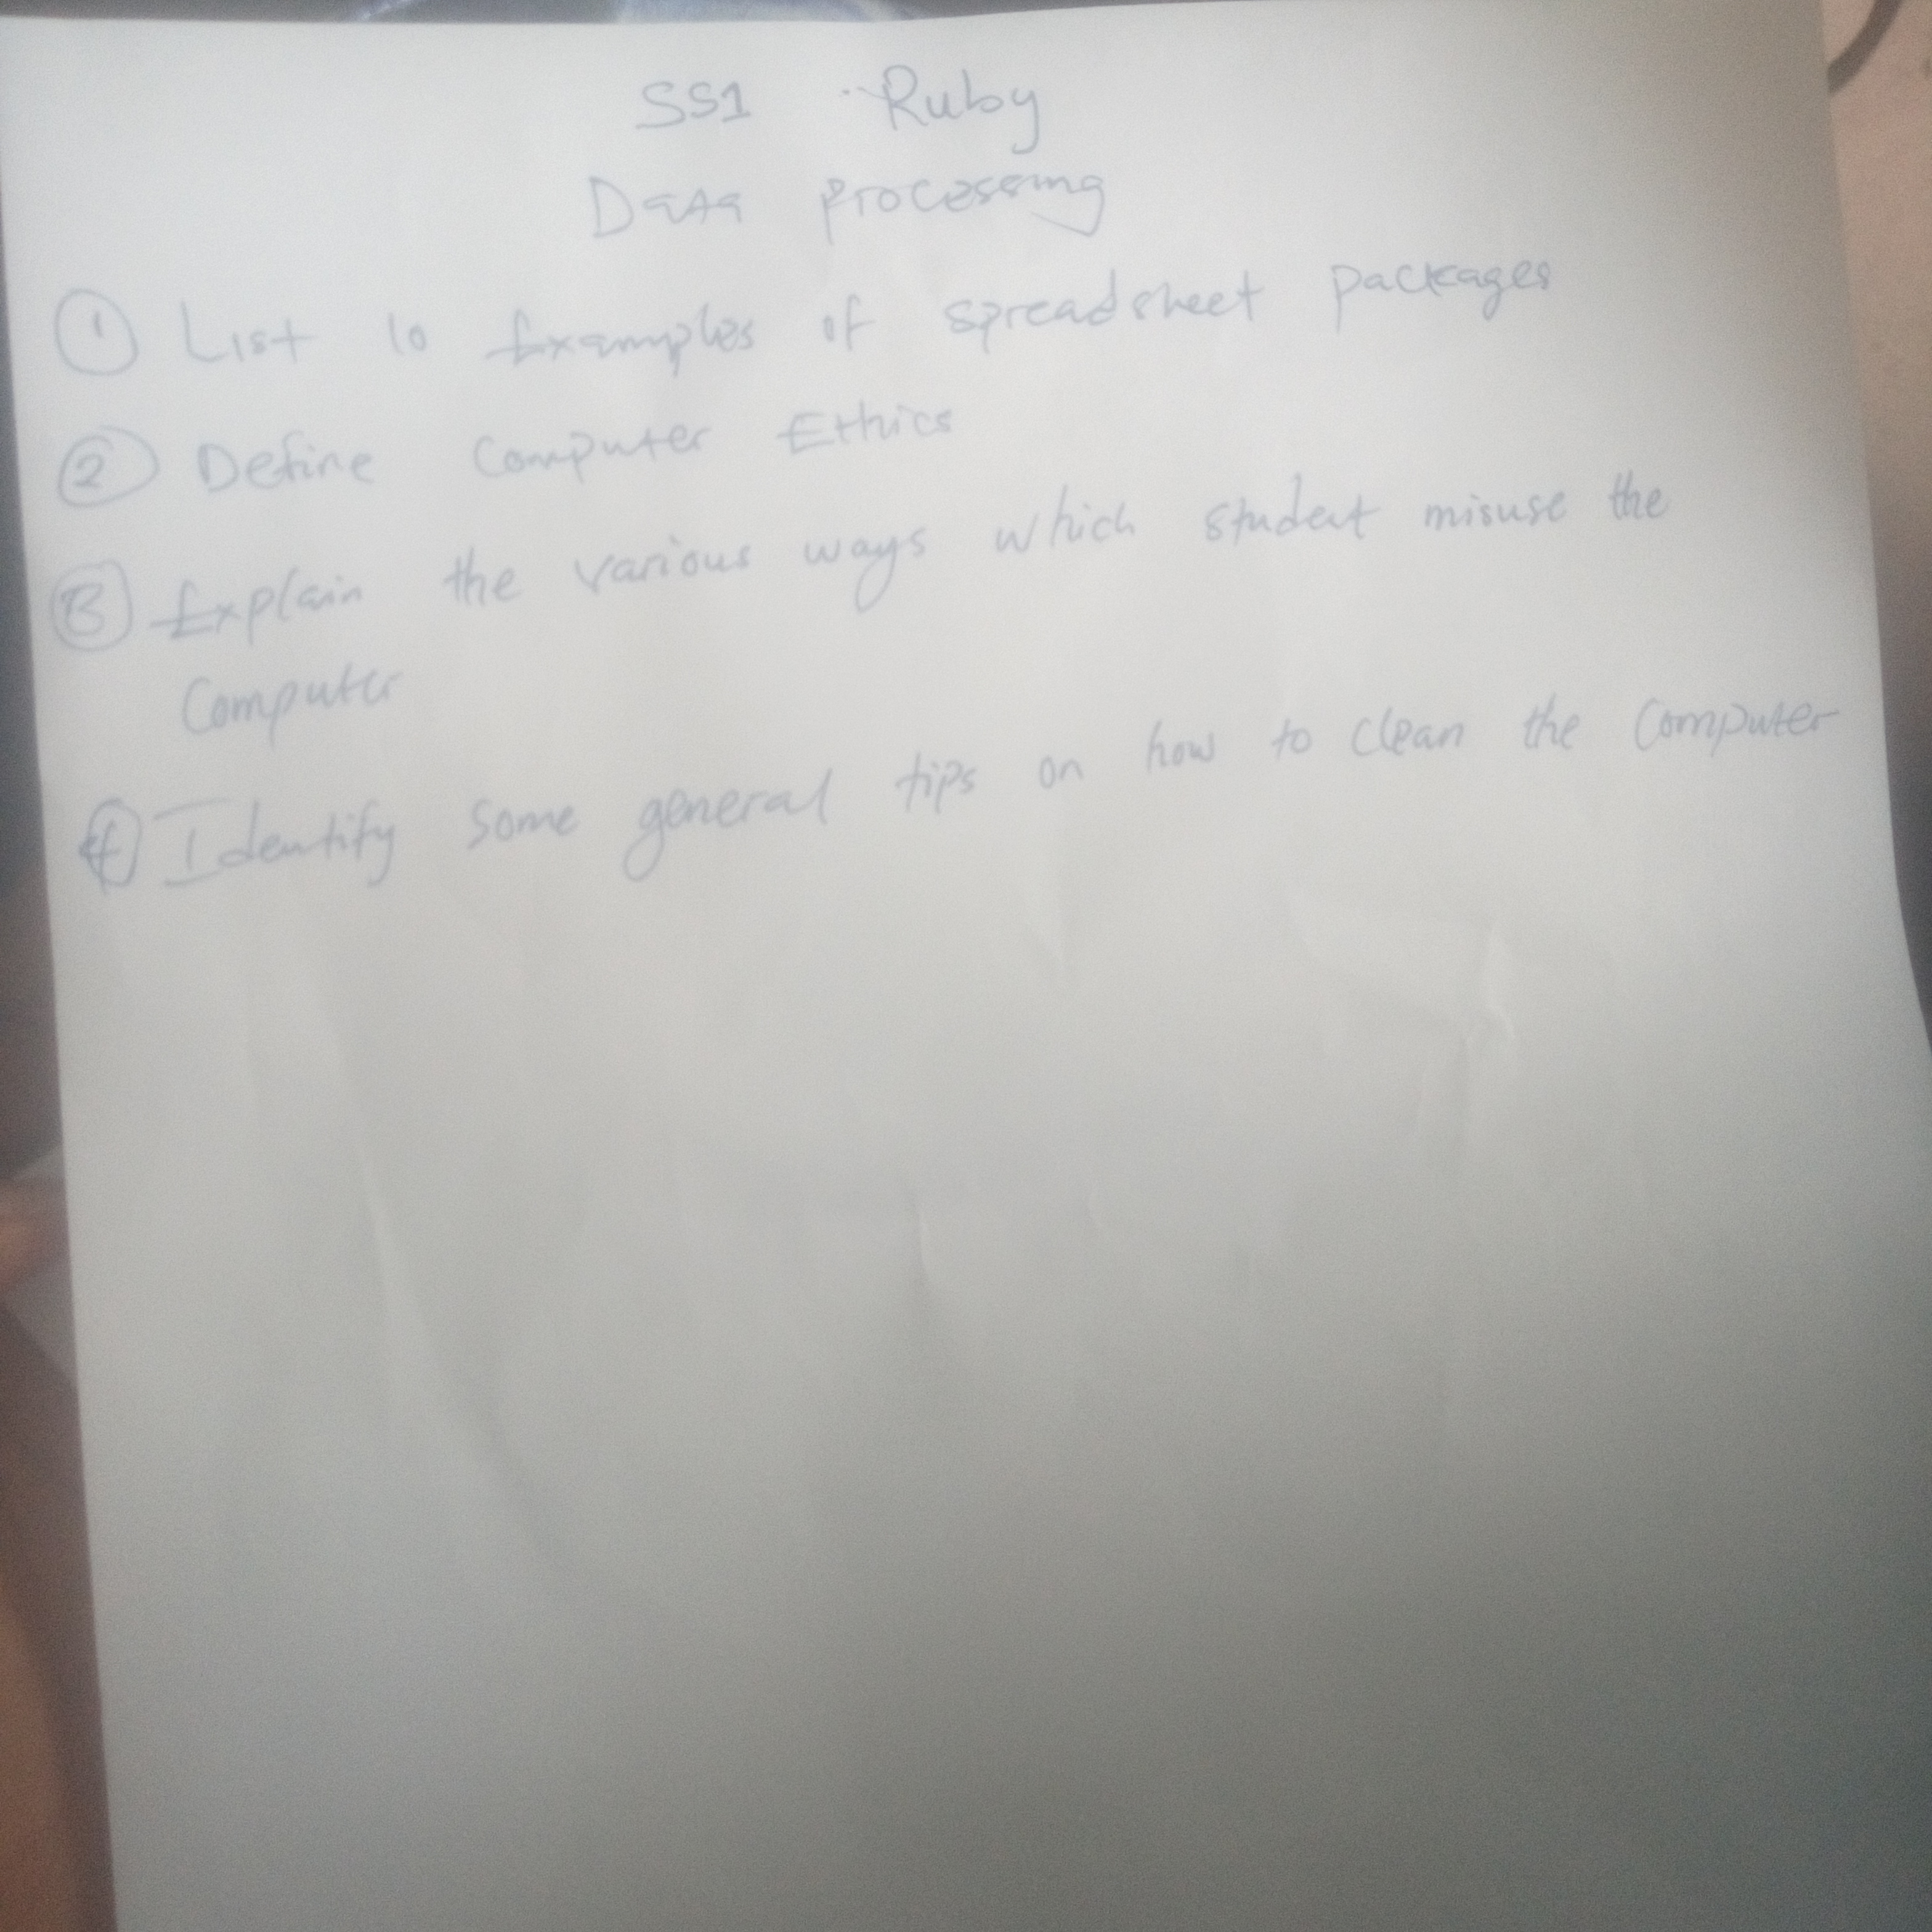 SS1 Ruby
Data processing
1 List 10 Examples of spreadsheet packages
2 Define Computer Ethics
3 Explain the various ways which student misuse the
Computer
4 Identify some general tips on how to clean the Computer